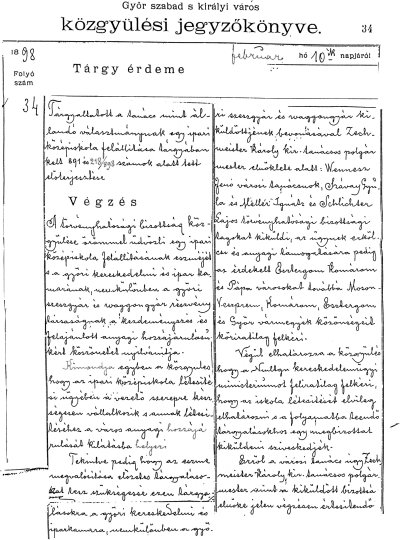 Győr szabad s királyi város
közgyülési jegyzőkönyve.
34
1898
február hó 10-ik napjáról
Folyó
szám
Tárgy érdeme
34
Tárgyaltatott a tanács mint ál-
landó választmánynak egy ipari
középiskola felállitása tárgyában
kelt 891 és számok alatt tett
előterjesztése.
Végzés
A törvényhatósági bizottság köz-
gyülése örömmel üdvözli egy ipari
középiskola felállitásának eszméjét
s a győri kereskedelmi és ipar ka-
marának, nemkülönben a győri
szeszgyár és waggongyár részvény
társaságnak a kezdeményezés és
felajánlott anyagi hozzájárulásu-
kért köszönetet nyilvánitja.
Kimondja egyben a közgyülés
hogy az ipari középiskola létesité-
si ügyében a vezető szerepet kész-
ségesen vállalkozik s annak létesi-
téséhez a város anyagi hozzájá-
rulását kilátásba helyezi
Tekintve pedig hogy az eszme
megvalósitása előzetes tárgyaláso-
kat tesz szükségessé ezen tárgya-
lásokra a győri kereskedelmi és
iparkamara, nemkülönben a győ-
ri szeszgyár és waggongyár ki-
küldöttjének bevonásával Zech-
meister Károly kir. tanácsos polgár-
mester elnöklete alatt: Wennesz
Jenő városi tanácsnok, Gyu-
la és Meller Ignátz és Schlichter
Lajos törvényhatósági bizottsági
tagokat kiküldi, az ügynek erköl-
csi és anyagi támogatására pedig
az érdekelt Esztergom Komárom
és Pápa városokat továbbá Moson
Veszprém, Komárom, Esztergom
és Győr vármegyék közönségeit
köziratilag felkéri.
Végül elhatározza a közgyülés
hogy a Nmltgu kereskedelemügyi
ministériumot feliratilag felkéri,
hogy az iskola létesitését elvileg
elhatározni s a folyamatba teendő
tárgyalásokhoz egy megbizottat
kiküldeni sziveskedjék.
Erről a városi tanács ugy Zech-
meister Károly, kir. tanácsos polgár-
mester mint a kiküldött bizottság
elnöke jelen végzésen értesitendő